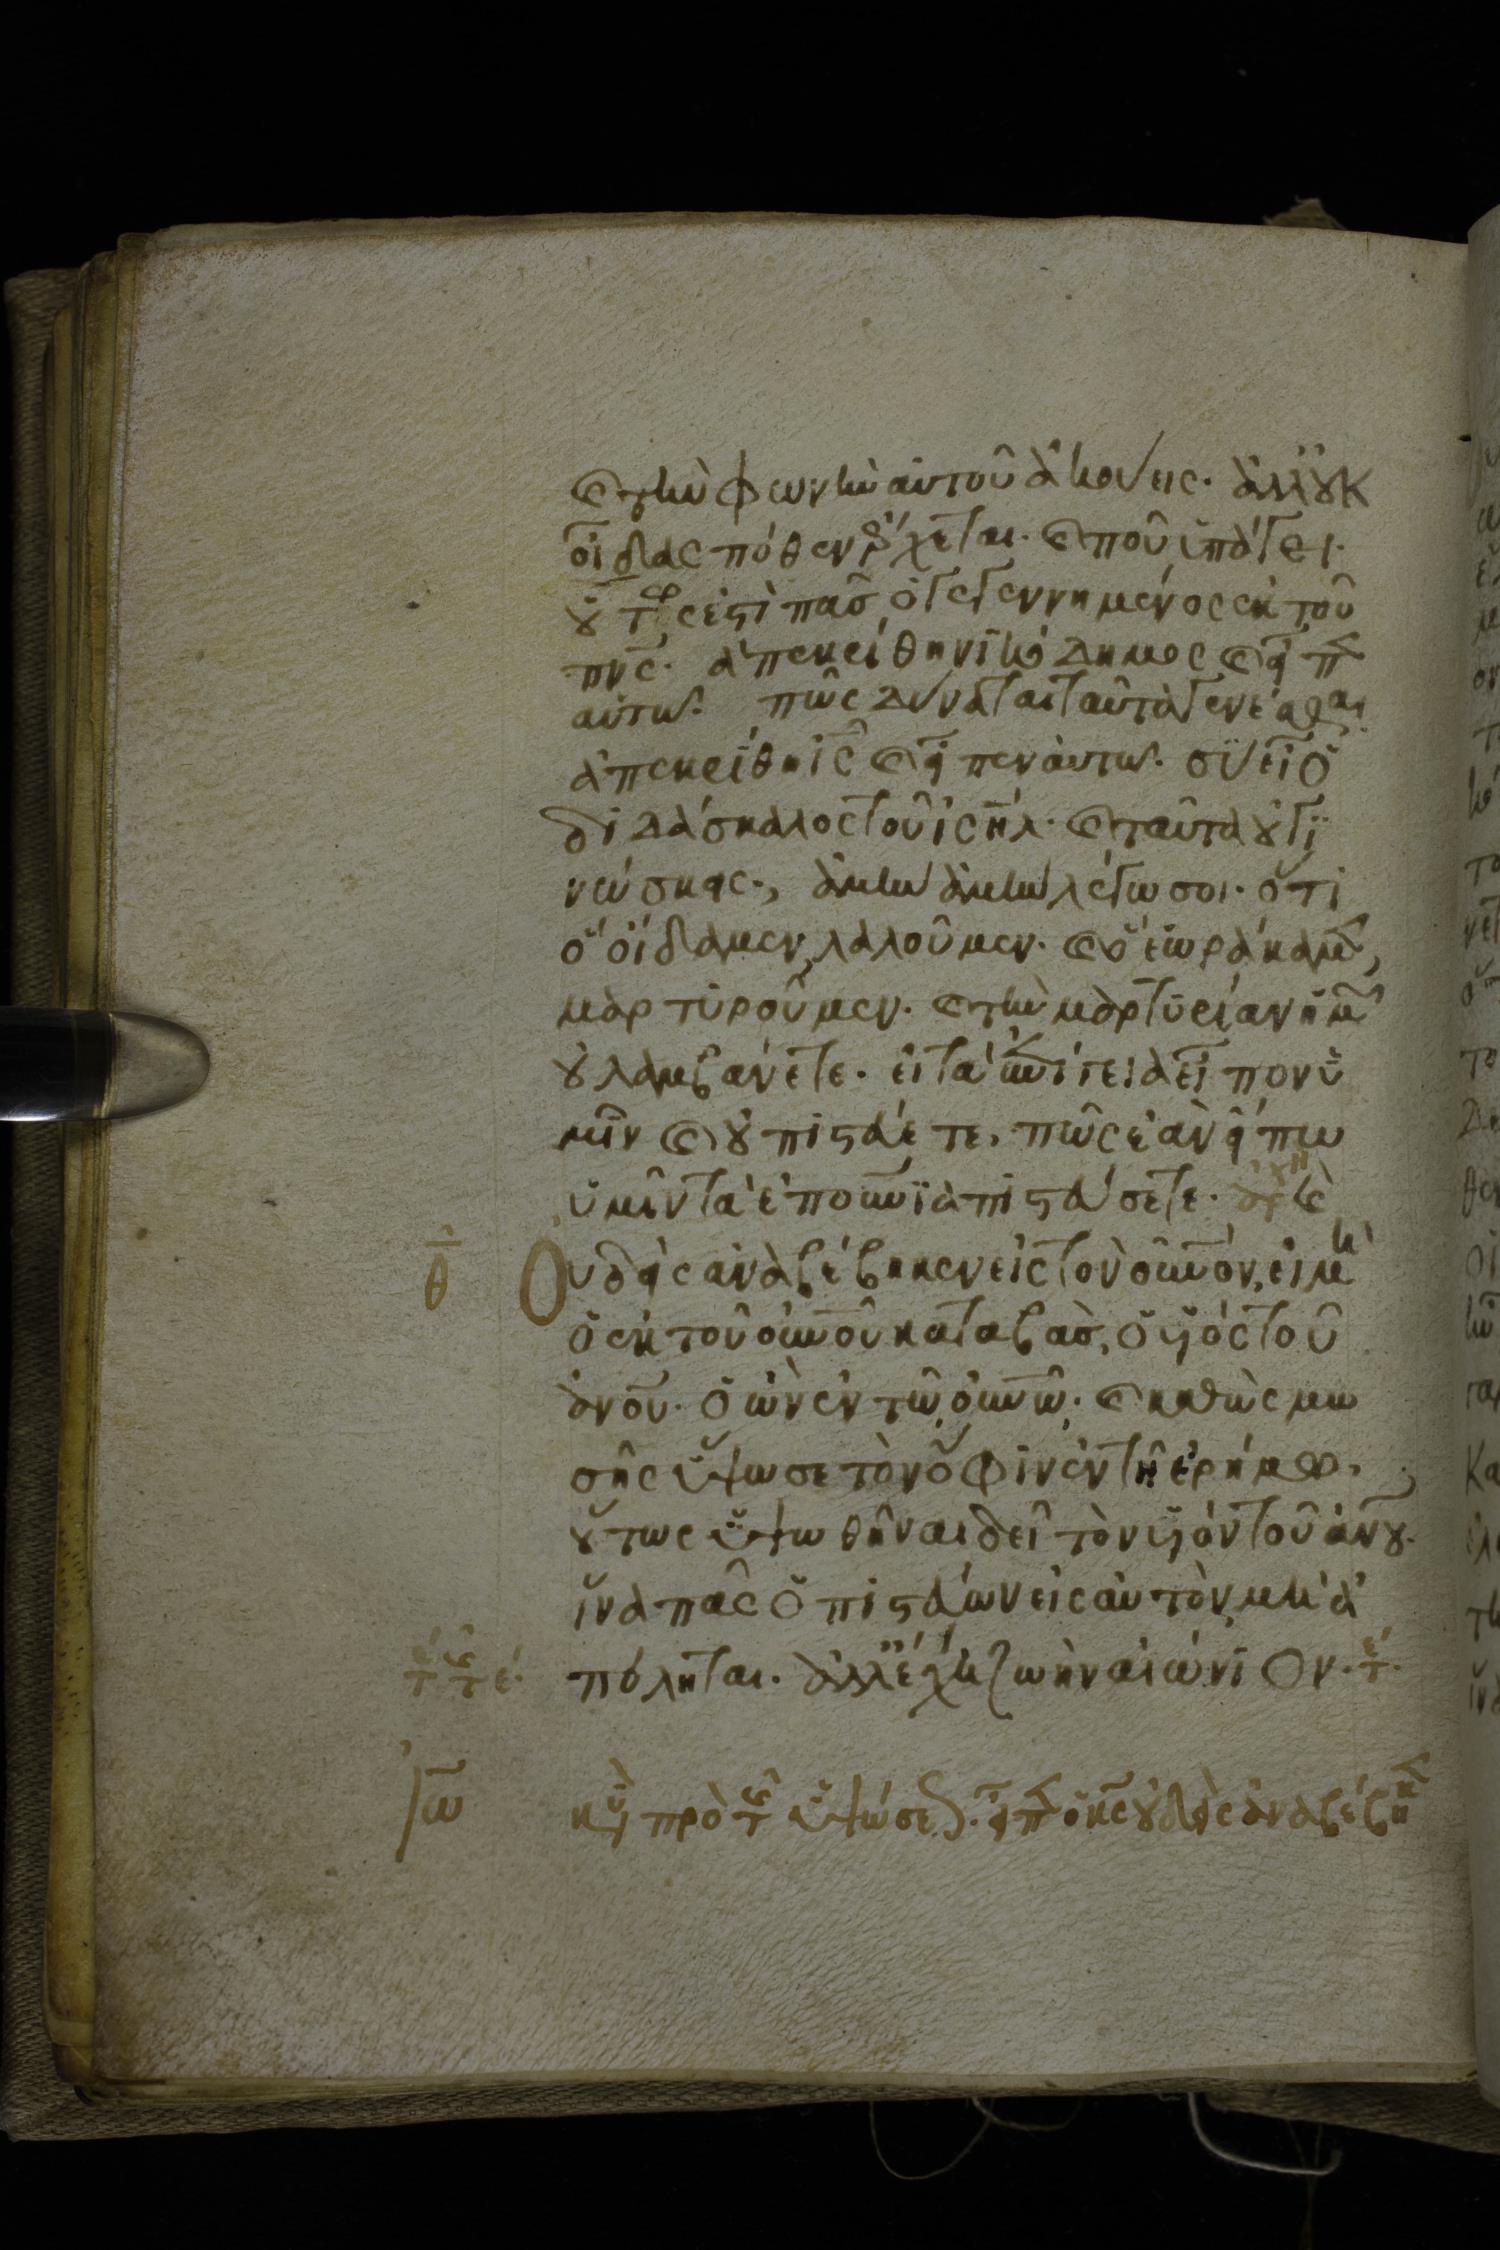 καὶ τὴν φωνὴν αὐτοῦ ἀκούεις· ἀλλ' οὐκ
οἶδας πόθεν ἔρχεται· καὶ ποῦ ὑπάγει·
οὕτως ἐστὶ πᾶς ὁ γεγεννημένος ἐκ τοῦ
πνς· ἀπεκρίθη νικόδημος καὶ εἶπεν
αὐτῶ· πῶς δύναται ταῦτα γενέσθαι
ἀπεκρίθη ις καὶ εἶπεν αὐτῶ· σὺ εἶ ὁ
διδάσκαλος τοῦ ιηλ· καὶ ταῦτα οὐ γι
νώσκεις., ἀμὴν ἀμὴν λέγω σοι· ὅτι
ὃ οἴδαμεν λαλοῦμεν· καὶ ὃ ἑωράκαμεν,
μαρτυροῦμεν· καὶ τὴν μαρτυρίαν ἡμῶν
οὐ λαμβάνετε· εἰ τὰ ἐπίγεια εἶπον ὑ
μῖν καὶ οὐ πιστεύετε, πῶς ἐὰν εἴπω
ὑμῖν τὰ ἐπουνια πιστεύσετε· ἀρχὴ
θ Οὐδεὶς ἀναβέβηκεν εἰς τὸν οὐνον, εἰ μὴ
ὁ ἐκ τοῦ οὐνοῦ καταβάς, ὁ υἱὸς τοῦ
ανου· ὁ ὢν ἐν τῶ οὐνω· καὶ καθὼς μω
σῆς ὕψωσε τὸν ὄφιν ἐν τῆ ἐρήμω,
οὕτως ὑψωθῆναι δεῖ τὸν υἱὸν τοῦ ἀνου·
ἵνα πᾶς ὁ πιστεύων εἰς αὐτὸν, μὴ ἀ
πόληται· ἀλλ' ἔχη ζωὴν αἰώνιον·
ιω κυ πρὸ τ ὑψώσε· εἶπεν ὁ κς οὐδεὶς ἀναβέβηκεν